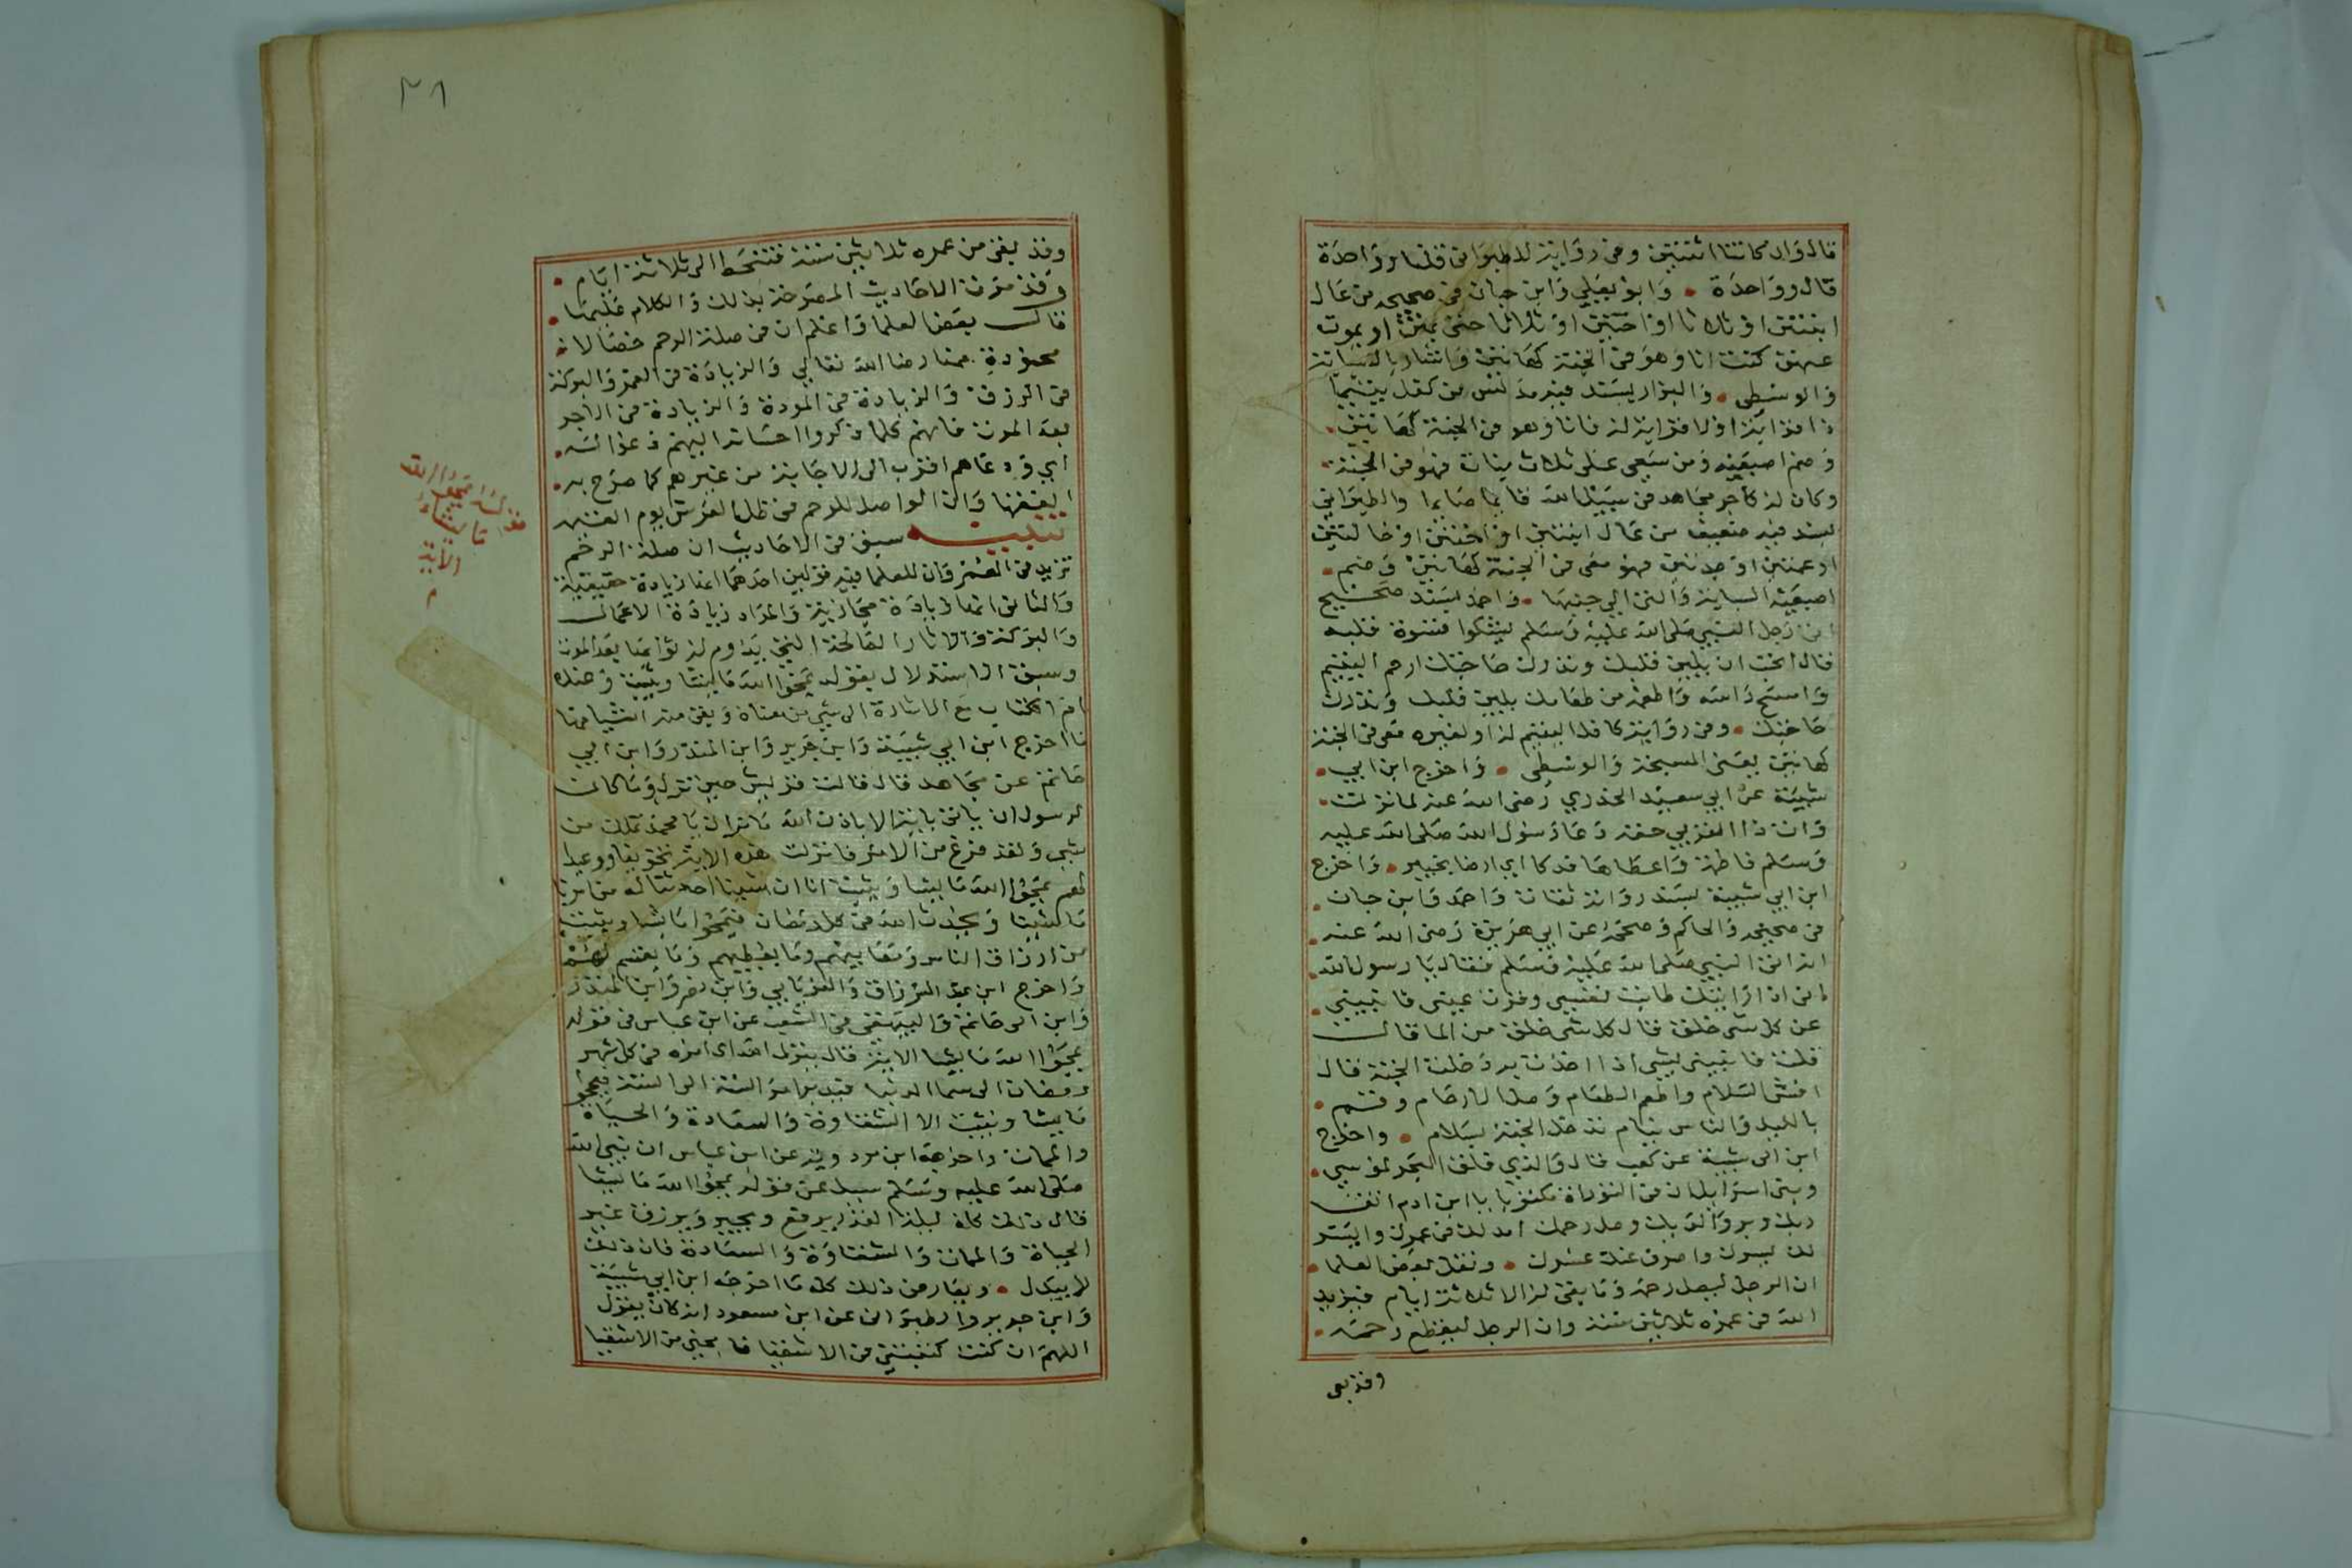 قال وان كانتا اثنتين وفي رواية للطبراني قلنا وواحدة
قال وواحدة • وابو يعلي وابن حبان في صحيحه من عال
ابنتين او ثلاثا او اختين او ثلاثا حتى يمتن او يموت
عنهن كنت انا وهو في الجنة كهاتين واشار بالسبابة
والوسطي • والبزار بسند فيه مدلس من كفل يتيما
ذا قرابة او لا قرابة له فانا وهو في الجنة كهاتين •
وضم اصبعيه ومن سعى على ثلاث بنات فهو في الجنة •
وكان له كاجر مجاهد في سبيل الله قايما صايما والطبراني
بسند فيه ضعيف من عال ابنتين او اختين او خالتين
او عمتين او جدتين فهو معي في الجنة كهاتين وضم •
اصبعيه السبابة والتي الي جنبها • واحمد بسند صحيح
اتى رجل النبي صلى الله عليه وسلم يشكوا قسوة قلبه
قال اتحب ان يلين قلبك وتدرك حاجتك ارحم اليتيم
وامسح راسه واطعمه من طعامك يلين قلبك وتدرك
حاجتك • وفي رواية كافل اليتيم له او لغيره معي في الجنة
كهاتين يعني المسبحة والوسطي • واخرج ابن ابي •
شيبة عن ابي سعيد الخدري رضي الله عنه لما نزلت •
وات ذا القربي حقه دعا رسول الله صلى الله عليه
وسلم فاطمة واعطاها فدكا اي ارضا بخيبر • واخرج
ابن ابي شيبة بسند رواته ثقات واحمد وابن حبان •
في صحيحه والحاكم وصححه عن ابي هريرة رضي الله عنه •
انه اتى النبي صلى الله عليه وسلم فقال يا رسول الله •
اني اذا رايتك طابت نفسي وقرت عيني فانبيني •
عن كل شي خلق قال كل شي خلق من الما قال
قلت فانبيني بشي اذا اخذت به دخلت الجنة قال
افش السلام واطعم الطعام وصل الارحام وقم •
بالليل والناس نيام تدخل الجنة بسلام • واخرج
ابن ابي شيبة عن كعب قال والذي فلق البحر لموسي •
وبني اسرايل ان في التوراة مكتوبا يا ابن ادم اتق
ربك وبر والديك وصل رحمك امد لك في عمرك وايسر
لك يسرك واصرف عنك عسرك • ونقل بعض العلما •
ان الرجل ليصل رحمه وما بقي له الا ثلاثة ايام فيزيد
الله في عمره ثلاثين سنة وان الرجل ليقطع رحمه •
وقد بقى
٢٨
وقد بقي من عمره ثلاثين سنة فتنحط الى ثلاثة ايام •
وقد مرت الاحاديث المصرحة بذلك والكلام عليها •
قال بعض العلما واعلم ان في صلة الرحم خصالا •
محمودة منها رضا الله تعالي والزيادة في العمر والبركة
في الرزق والزيادة في المودة والزيادة في الاجر
بعد الموت فانهم كلما ذكروا احسانه اليهم دعوا له •
اي ودعاهم اقرب الى الاجابة من غيرهم كما صرح به •
الفقها وان الواصل للرحم في ظل العرش يوم القيمة
تنبيه • سبق في الاحاديث ان صلة الرحم
تزيد في العمر وان للعلما فيه قولين احدهما انها زيادة حقيقية
والثاني انها زيادة مجازية والمراد زيادة الاعمال
والبركة والاثار الصالحة التي يدوم له ثوابها بعد الموت
وسبق الاستدلال بقوله يمحوا الله ما يشا ويثبت وعنده
ام الكتاب مع الاشارة الى شي من معناه وبقي منه اشيا منها
ما اخرج ابن ابي شيبة وابن جرير وابن المنذر وابن ابي
حاتم عن مجاهد قال قالت قريش حين نزل وما كان
لرسول ان ياتي باية الا باذن الله ما نراك يا محمد تملك من
شي ولقد فرغ من الامر فانزلت هذه الاية تخويفا ووعيدا
لهم يمحوا الله ما يشا ويثبت انا ان شينا احدثنا له من امرنا
ما شينا ويحدث الله في كل رمضان فيمحوا ما يشا ويثبت
من ارزاق الناس ومصايبهم وما يعطيهم وما يقسم لهم
واخرج ابن عبد الرزاق والفريابي وابن جرير وابن المنذر
وابن ابي حاتم والبيهقي في الشعب عن ابن عباس في قوله
يمحوا الله ما يشا الاية قال ينزل الله اي امره في كل شهر
رمضان الى سما الدنيا فيدبر امر السنة الي السنة فيمحوا
ما يشا ويثبت الا الشقاوة والسعادة والحياة
والممات واخرجه ابن مردويه عن ابن عباس ان نبي الله
صلى الله عليه وسلم سيل عن قوله يمحوا الله ما يشا
قال ذلك كله ليلة القدر يرفع ويجبر ويرزق غير
الحياة والممات والشقاوة والسعادة فان ذلك
لا يبدل • ويعارض ذلك كله ما اخرجه ابن ابي شيبة
وابن جرير والطبراني عن ابن مسعود انه كان يقول
اللهم ان كنت كتبتني من الاشقيا فامحني من الاشقيا
قوله يمحوا الله
ما يشاء
الاية